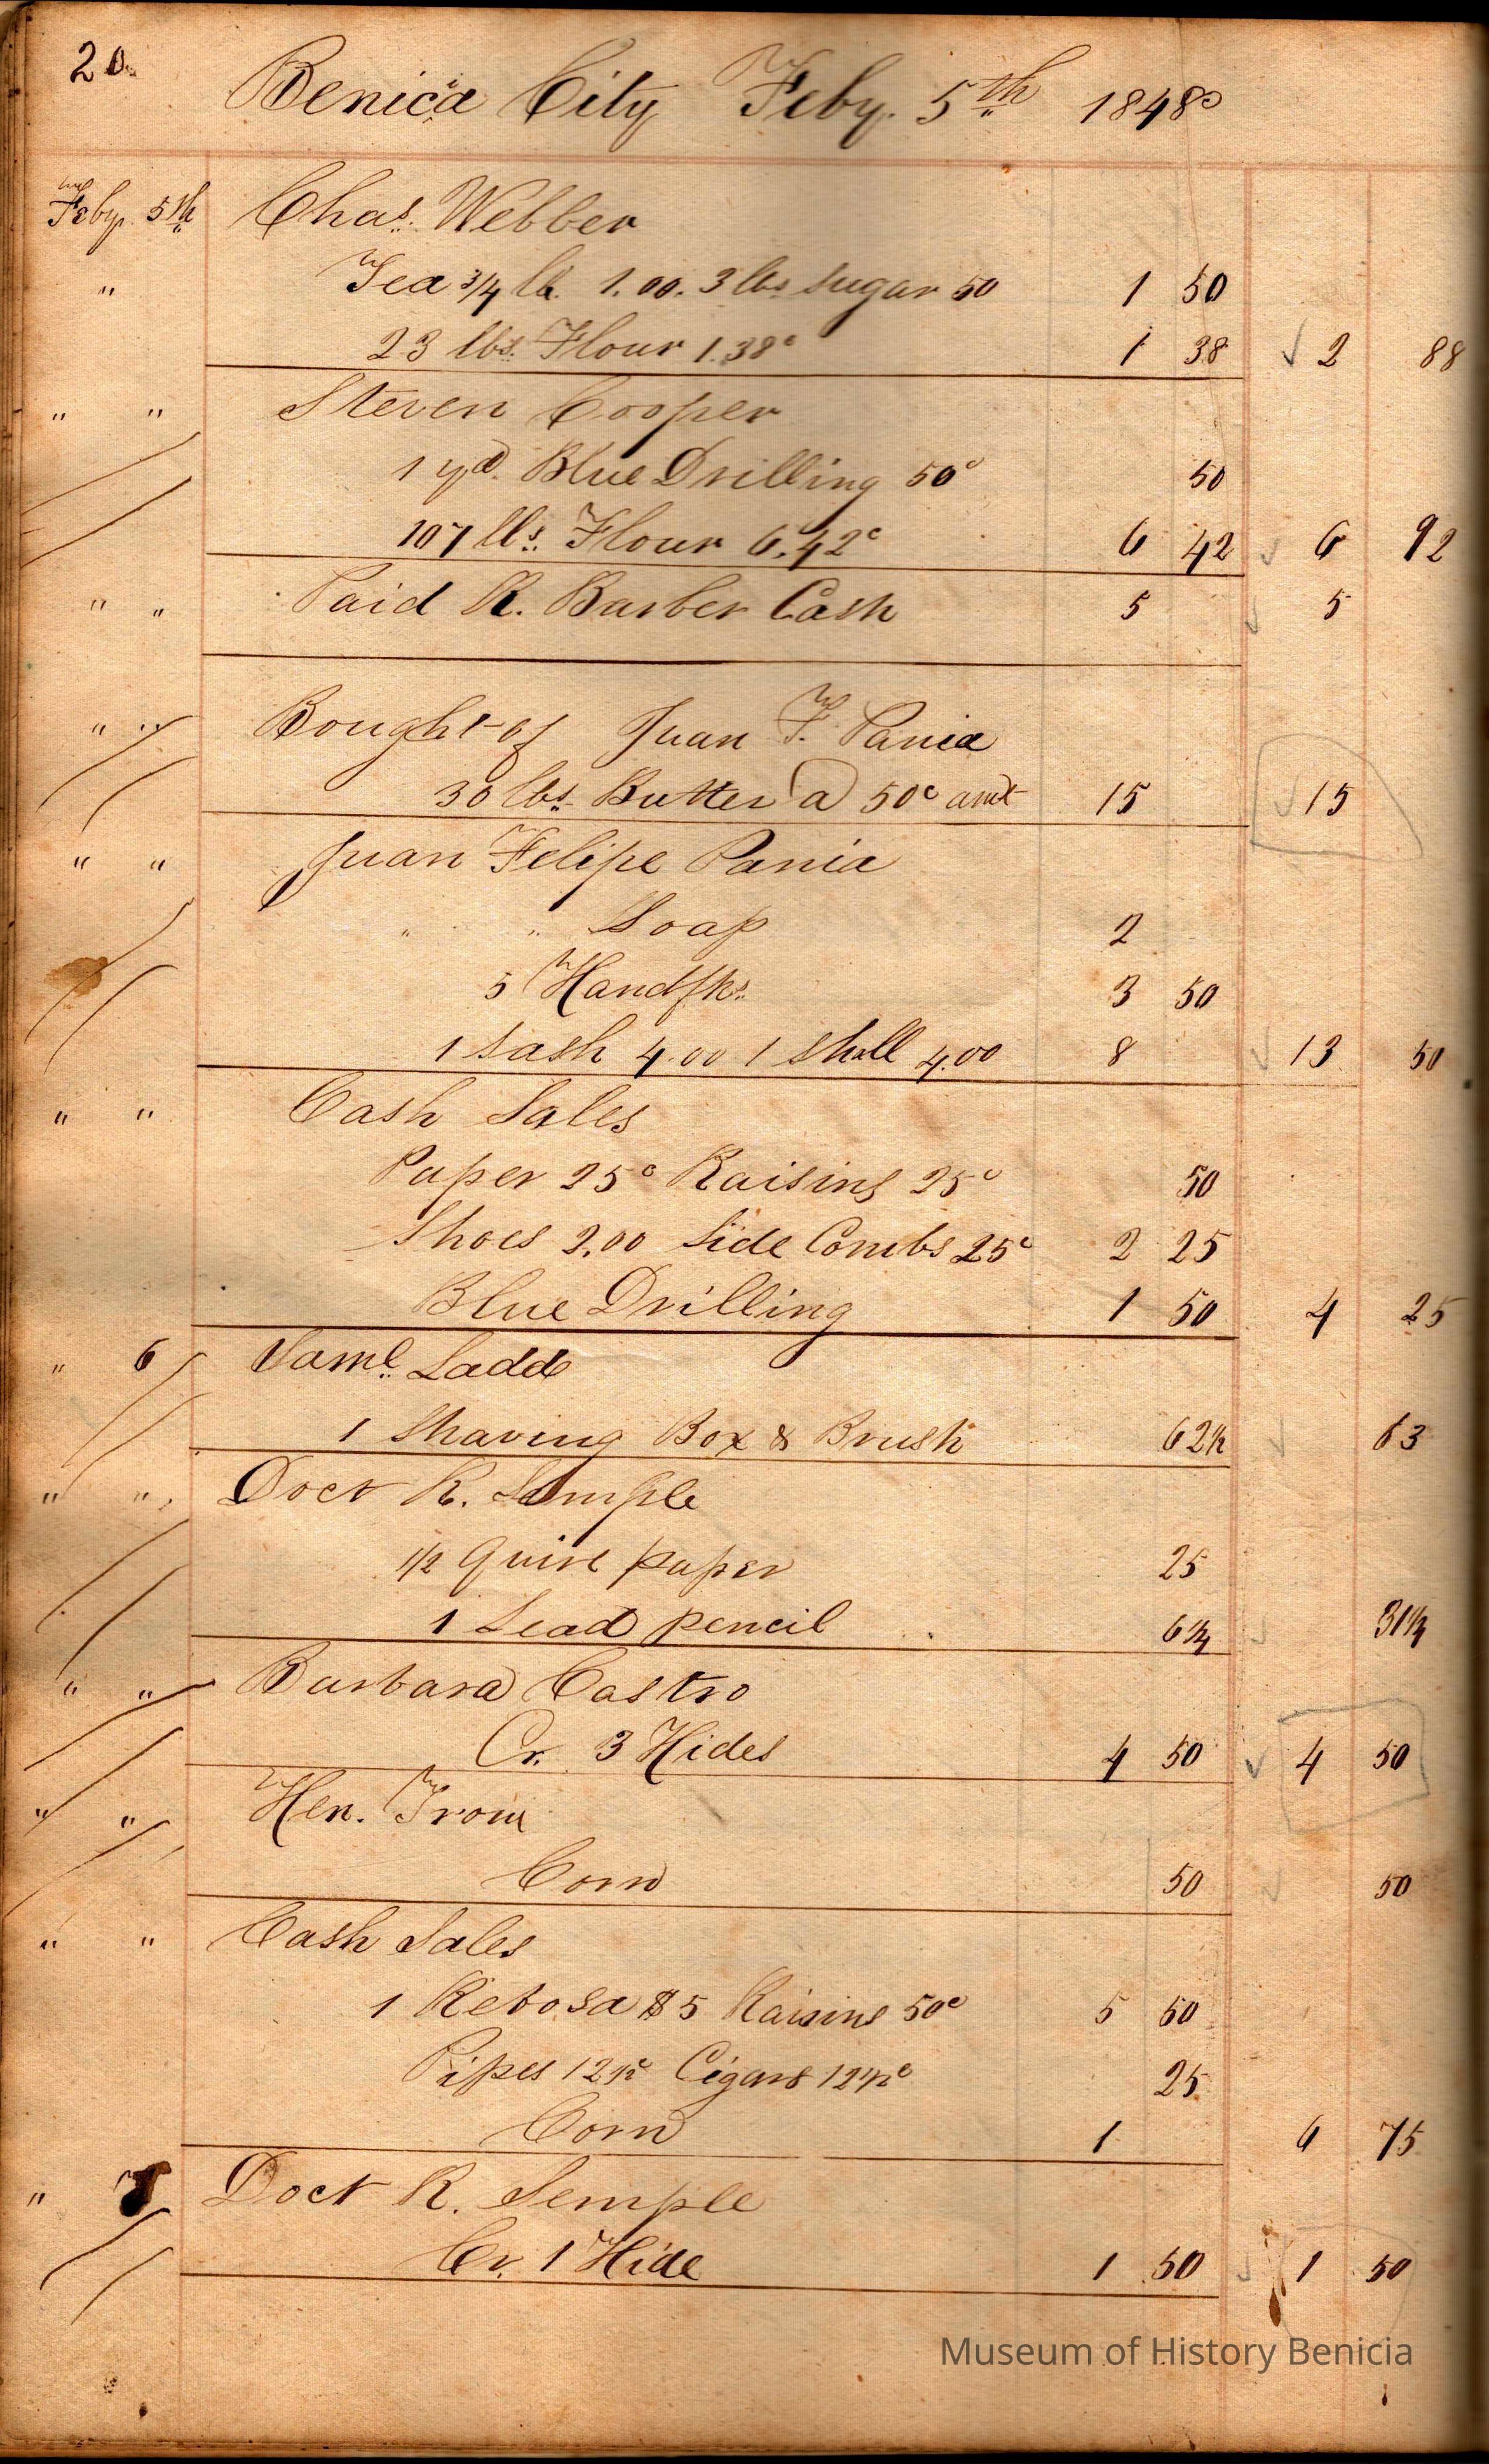 20
Benicia City Feby. 5th 1848
Feby. 5th Chas. Webber
" Tea 3/4 lb. 1.00. 3 lbs Sugar 50 1 50
23 lbs. Flour 1.38c 1 38 2 88
" " Steven Cooper
1 yd. Blue Drilling 50c 50
107 lbs. Flour 6.42c 6 42 6 92
" " Paid R. Barber Cash 5 5
" " Bought of Juan F. Pania
30 lbs. Butter a 50c amt 15 15
" " Juan Felipe Pania
" " Soap 2
5 Handfks. 3 50
1 Sash 4.00 1 Shall 4.00 8 13 50
" " Cash Sales
Paper 25c Raisins 25c 50
Shoes 2.00 Side Combs 25c 2 25
Blue Drilling 1 50 4 25
" 6 Saml. Ladd
1 Shaving Box & Brush 62½ 63
" " Doct R. Semple
1/2 Quire paper 25
1 Lead pencil 6¼ 31¼
" " Barbara Castro
Cr. 3 Hides 4 50 4 50
" " Hen. Trow
Corn 50 50
" " Cash Sales
1 Rebosa $5 Raisins 50c 5 50
Pipes 12½c Cigars 12½c 25
Corn 1 6 75
" 7 Doct R. Semple
Cr. 1 Hide 1 50 1 50
Museum of History Benicia